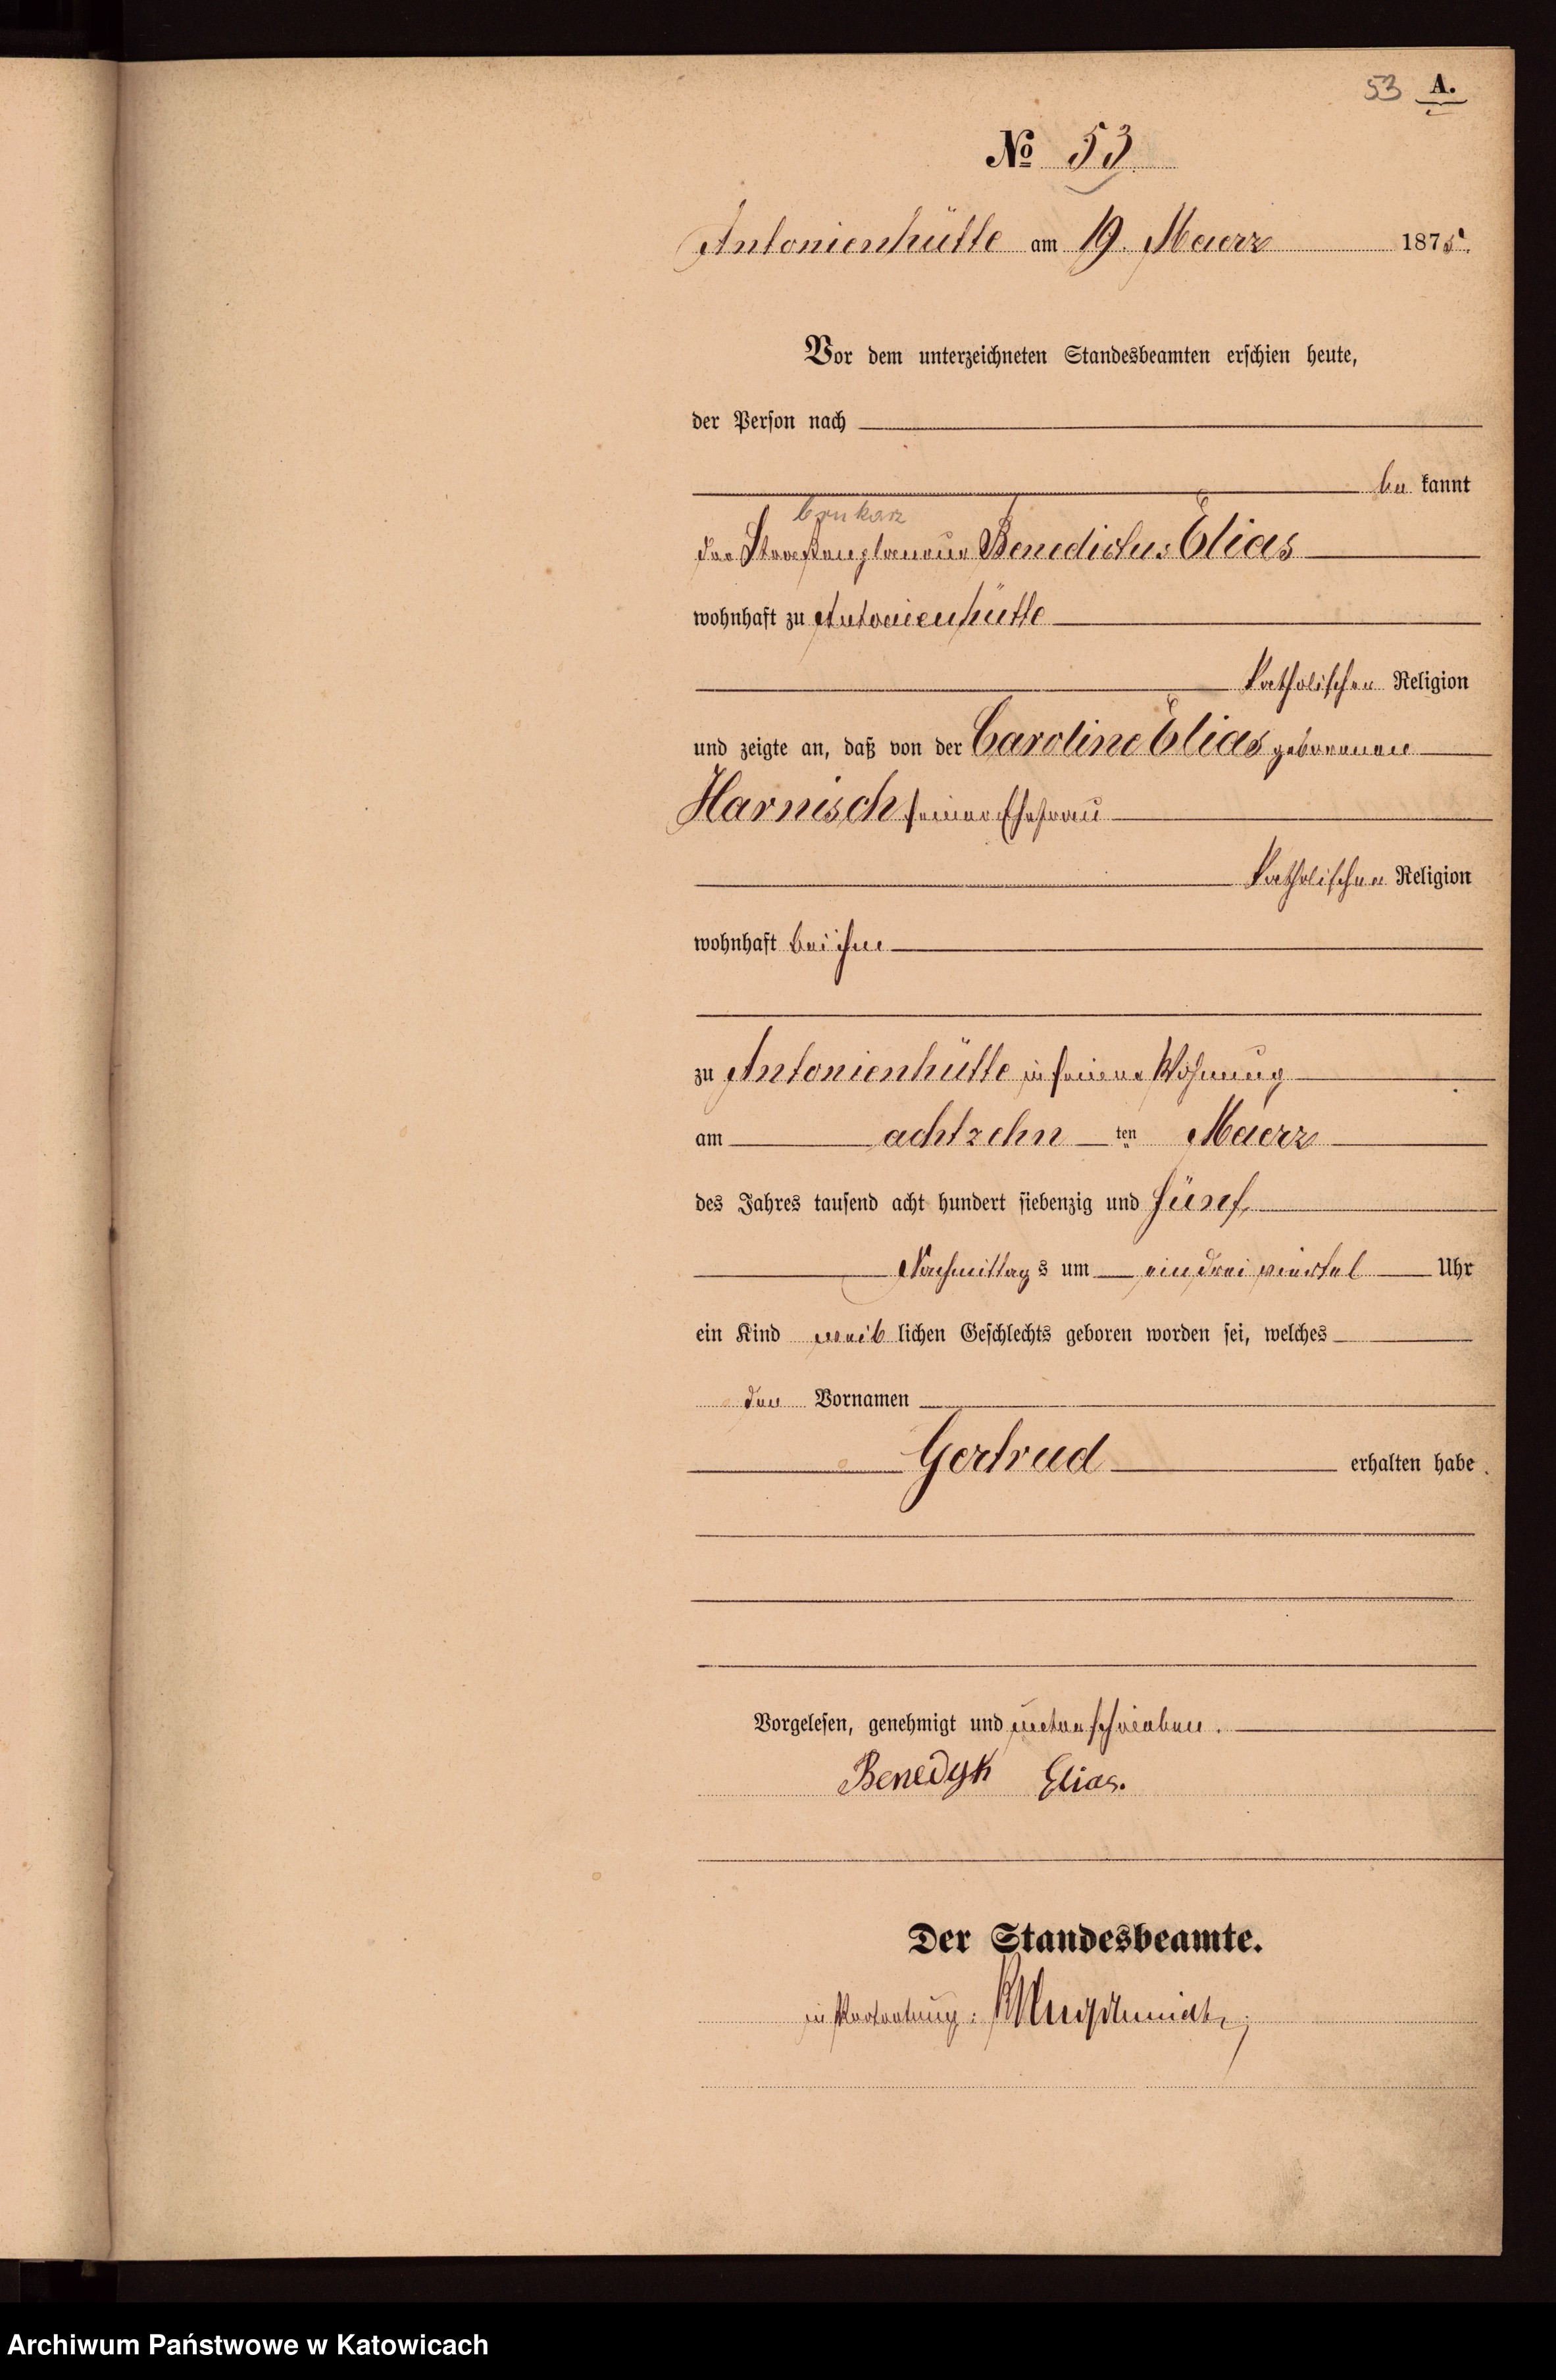 53 A.
No 53.
Antonienhütte am 19. Maerz 1875.
Vor dem unterzeichneten Standesbeamten erschien heute,
der Person nach
be kannt
brukarz
der Straßenplaneur Benedictus Elias
wohnhaft zu Antonienhütte
katholischer Religion
und zeigte an, daß von der Caroline Elias geborenen
Harnisch seiner Ehefrau
katholischer Religion
wohnhaft bei ihm
zu Antonienhütte in seiner Wohnung
am achtzehn ten Maerz
des Jahres tausend acht hundert siebenzig und fünf,
Nachmittag s um ein drei viertel Uhr
ein Kind weib lichen Geschlechts geboren worden sei, welches
den Vornamen
Gertrud erhalten habe.
Vorgelesen, genehmigt und unterschrieben.
Benedyk Elias.
Der Standesbeamte.
in Vertretung:
Archiwum Państwowe w Katowicach